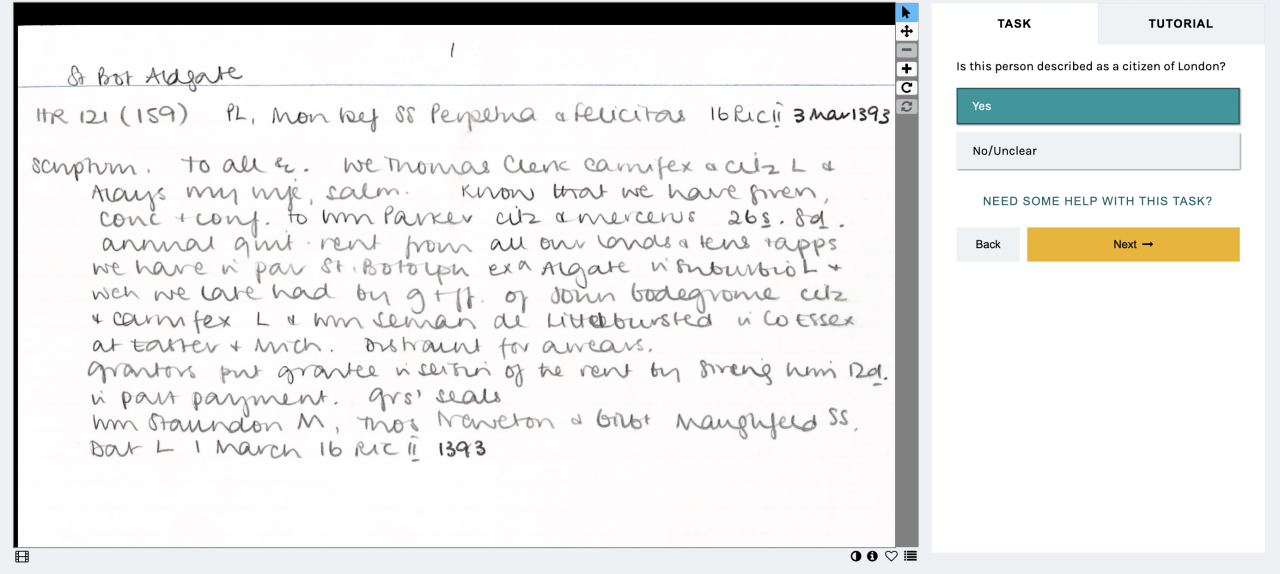 1
St Bot Aldgate
HR 121 (159) PL, Mon bef SS Perpetua & Felicitas 16 Ric ii 3 Mar 1393
Scriptum. To all &. We Thomas Clerk carnifex & citz L &
Alays my wife, salm. Know that we have given,
conc + conf. to Wm Parker citz & mercerus 26s. 8d.
annual quit-rent from all our lands & tens + apps
we have in par St. Botolph exa Algate in suburbio L +
wch we late had by g + ff. of John Bodegrome citz
+ carnifex L & Wm Seman de Litterbursted in Co Essex
at Easter + Mich. Distraint for arrears.
Grantors put grantee in seisin of the rent by giving him 12d.
in part payment. grs' seals
Wm Staundon M, Thos Neweton & Gilbt Maughfeld SS.
Dat L 1 March 16 Ric ii 1393
TASK
TUTORIAL
Is this person described as a citizen of London?
Yes
No/Unclear
NEED SOME HELP WITH THIS TASK?
Back
Next →